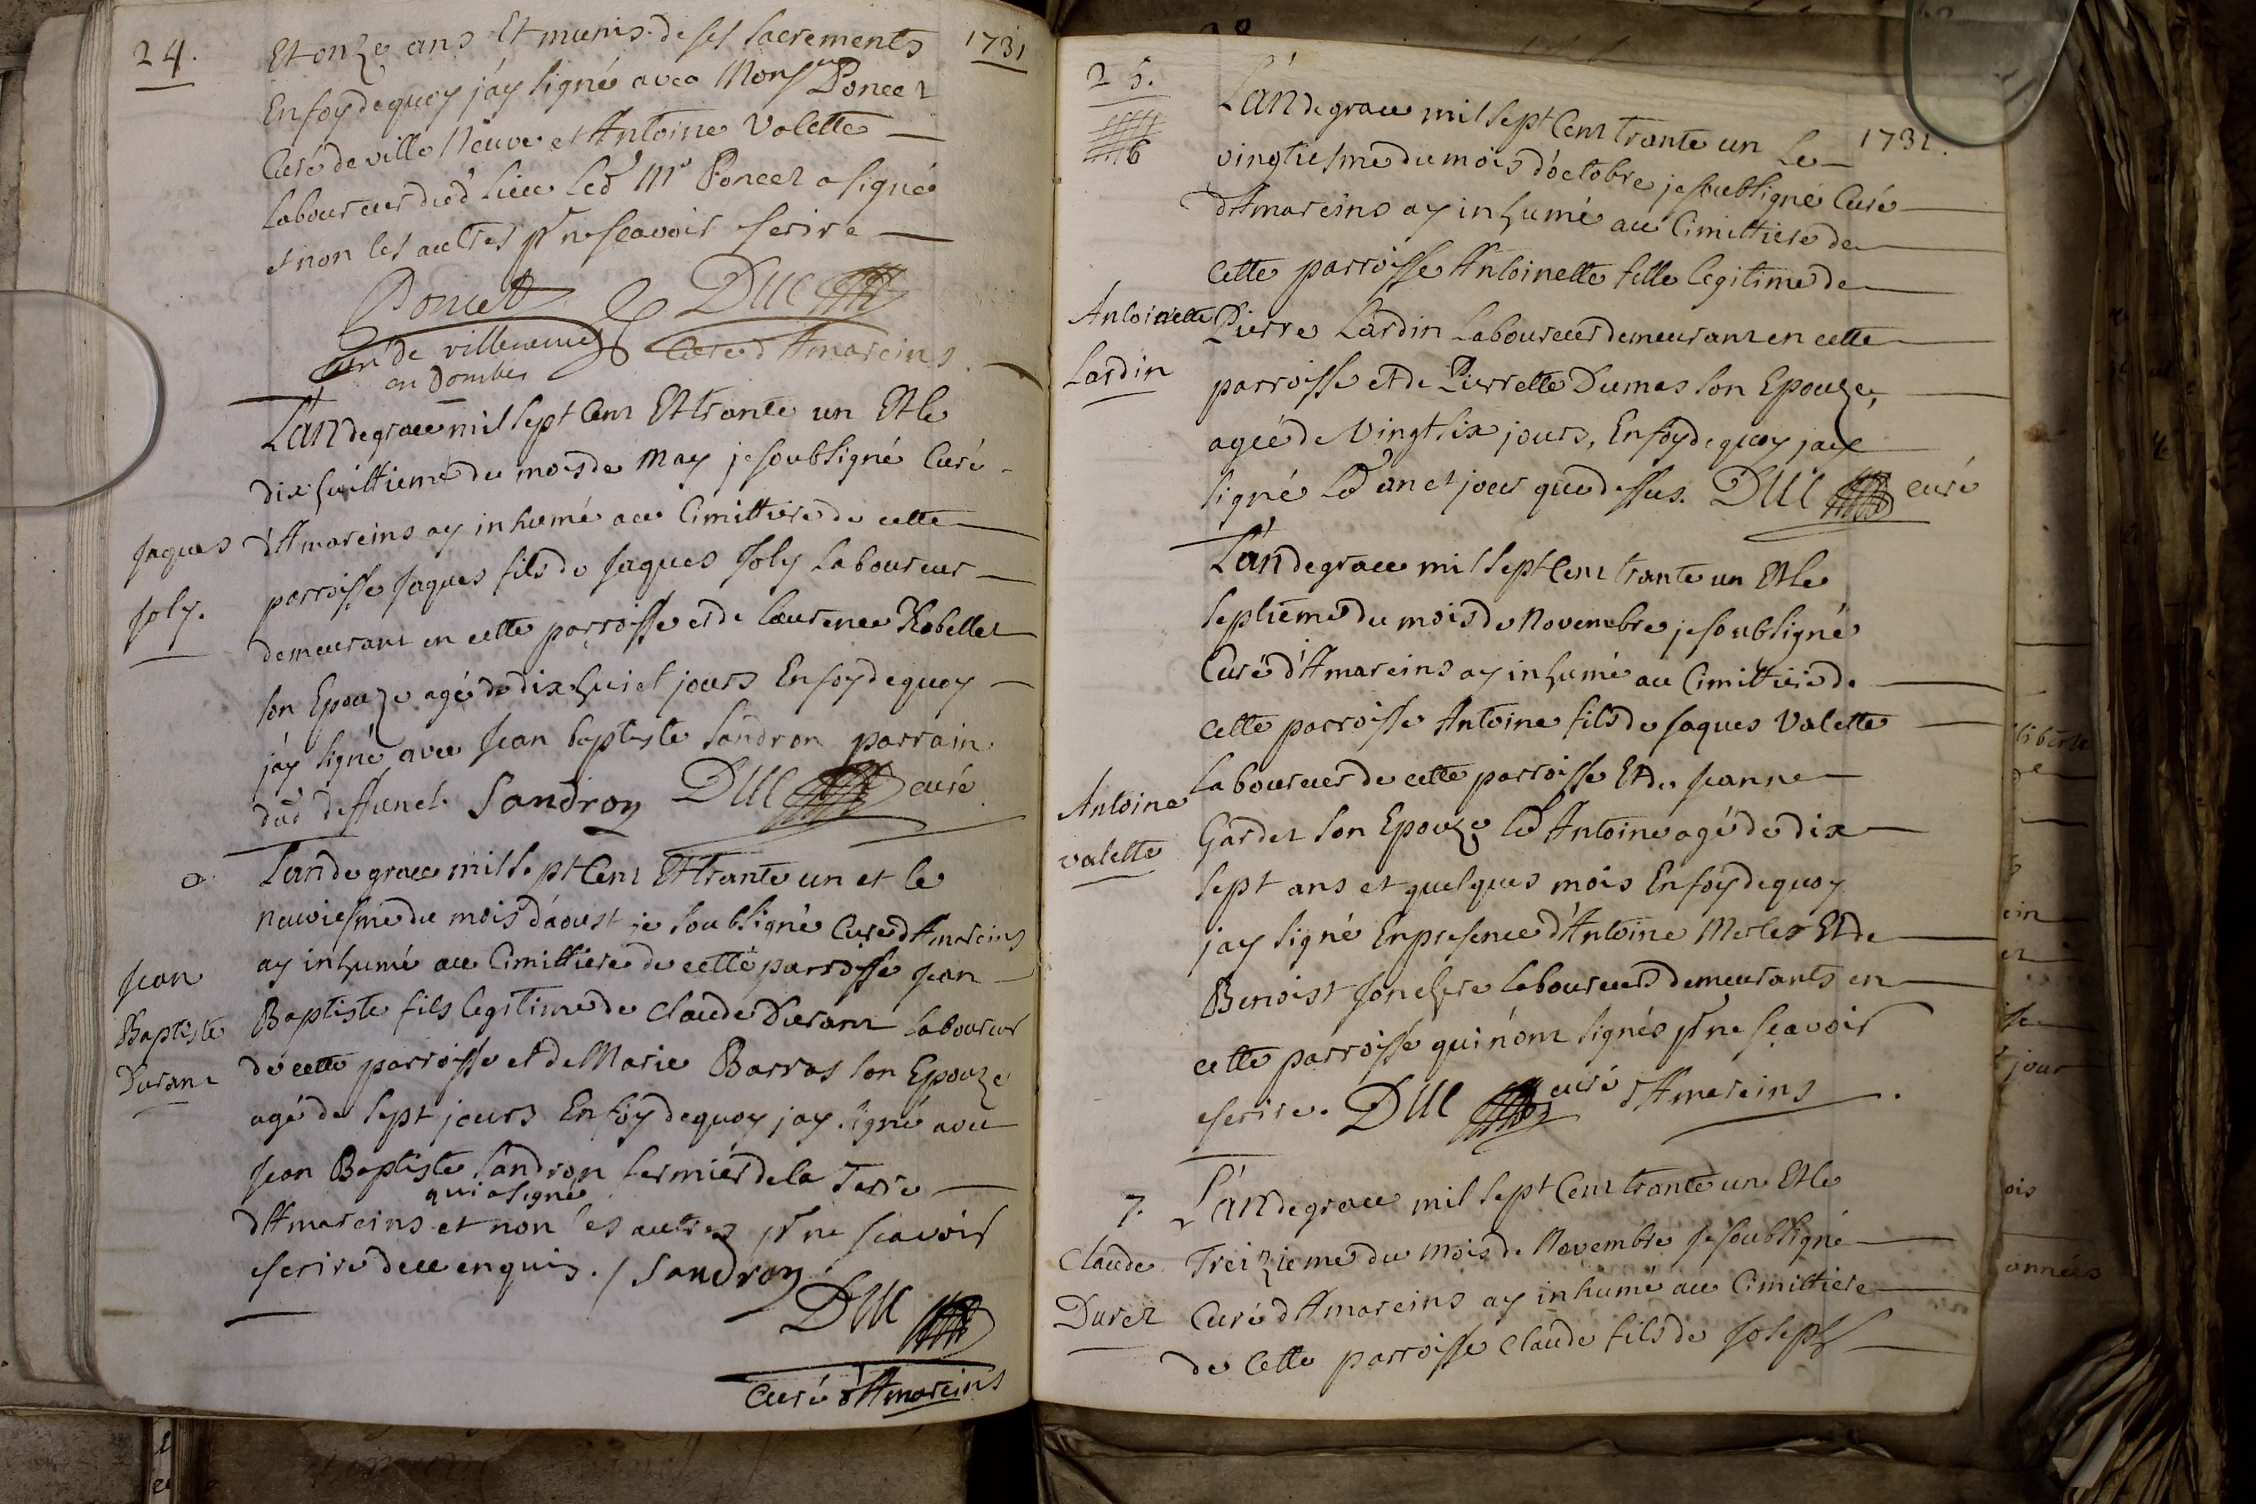 24.
1731
Et onze ans Et munis de ses sacrements
En foy de quoy j'ay signé avec Monsr Poncet
Curé de ville Neuve et Antoine Valette
laboureur dud lieu led Mr Poncet a signé
et non les autres pr ne scavoir escrire
Poncet
DUC
curé de villeneuve
en Dombes
Curé d'Amareins
L'an de grace mil sept Cent Et trante un Et le
dix huittieme du mois de May je soubsigné Curé
d'Amareins ay inhumé au Cimittiere de cette
Jaques
Joly.
parroisse Jaques fils de Jaques Joly Laboureur
demeurant en cette parroisse et de laurence Robellet
son Epouze agé de dix huict jours En foy de quoy
j'ay signé avec Jean baptiste Sandron parrain
dud deffunct. Sandron DUC curé
a
L'an de grace mil sept Cent Et trante un et le
neuviesme du mois d'aoust je soubsigné Curé d'Amareins
ay inhumé au Cimittiere de cette parroisse Jean
Jean
Baptiste
Durant
Baptiste fils legitime de Claude Durant laboureur
de cette parroisse et de Marie Barras son Epouze
agé de sept jours En foy de quoy j'ay signé avec
Jean Baptiste Sandron fermier de la Terre
qui a signé
d'Amareins et non les autres pr ne scavoir
escrire de ce enquis. / Sandron
DUC
Curé d'Amareins
25.
6
1731.
L'an de grace mil sept Cent trante un Le
vingtiesme du mois d'octobre je soubsigné Curé
d'Amareins ay inhumé au Cimittiere de
cette parroisse Antoinette fille legitime de
Antoinette
Lardin
Pierre Lardin Laboureur demeurant en cette
parroisse et de Pierrette Dumas son Epouze,
agée de Vingt six jours, En foy de quoy j'ay
signé led an et jour que dessus. DUC curé
L'an de grace mil sept Cent trante un Et le
septieme du mois de Novembre je soubsigné
Curé d'Amareins ay inhumé au Cimittiere de
cette parroisse Antoine fils de Jaques Valette
Laboureur de cette parroisse Et de Jeanne
Antoine
valette
Gardet son Epouze led Antoine agé de dix
sept ans et quelques mois En foy de quoy
j'ay signé En presence d'Antoine Merlet Et de
Benoist Jonchre laboureurs demeurants en
cette parroisse qui n'ont signés pr ne scavoir
escrire. DUC curé d'Amareins
7.
Claude
Duret
L'an de grace mil sept Cent trante un Et le
Treizieme du mois de Novembre je soubsigné
Curé d'Amareins ay inhumé au Cimittiere
de Cette parroisse Claude fils de Joseph